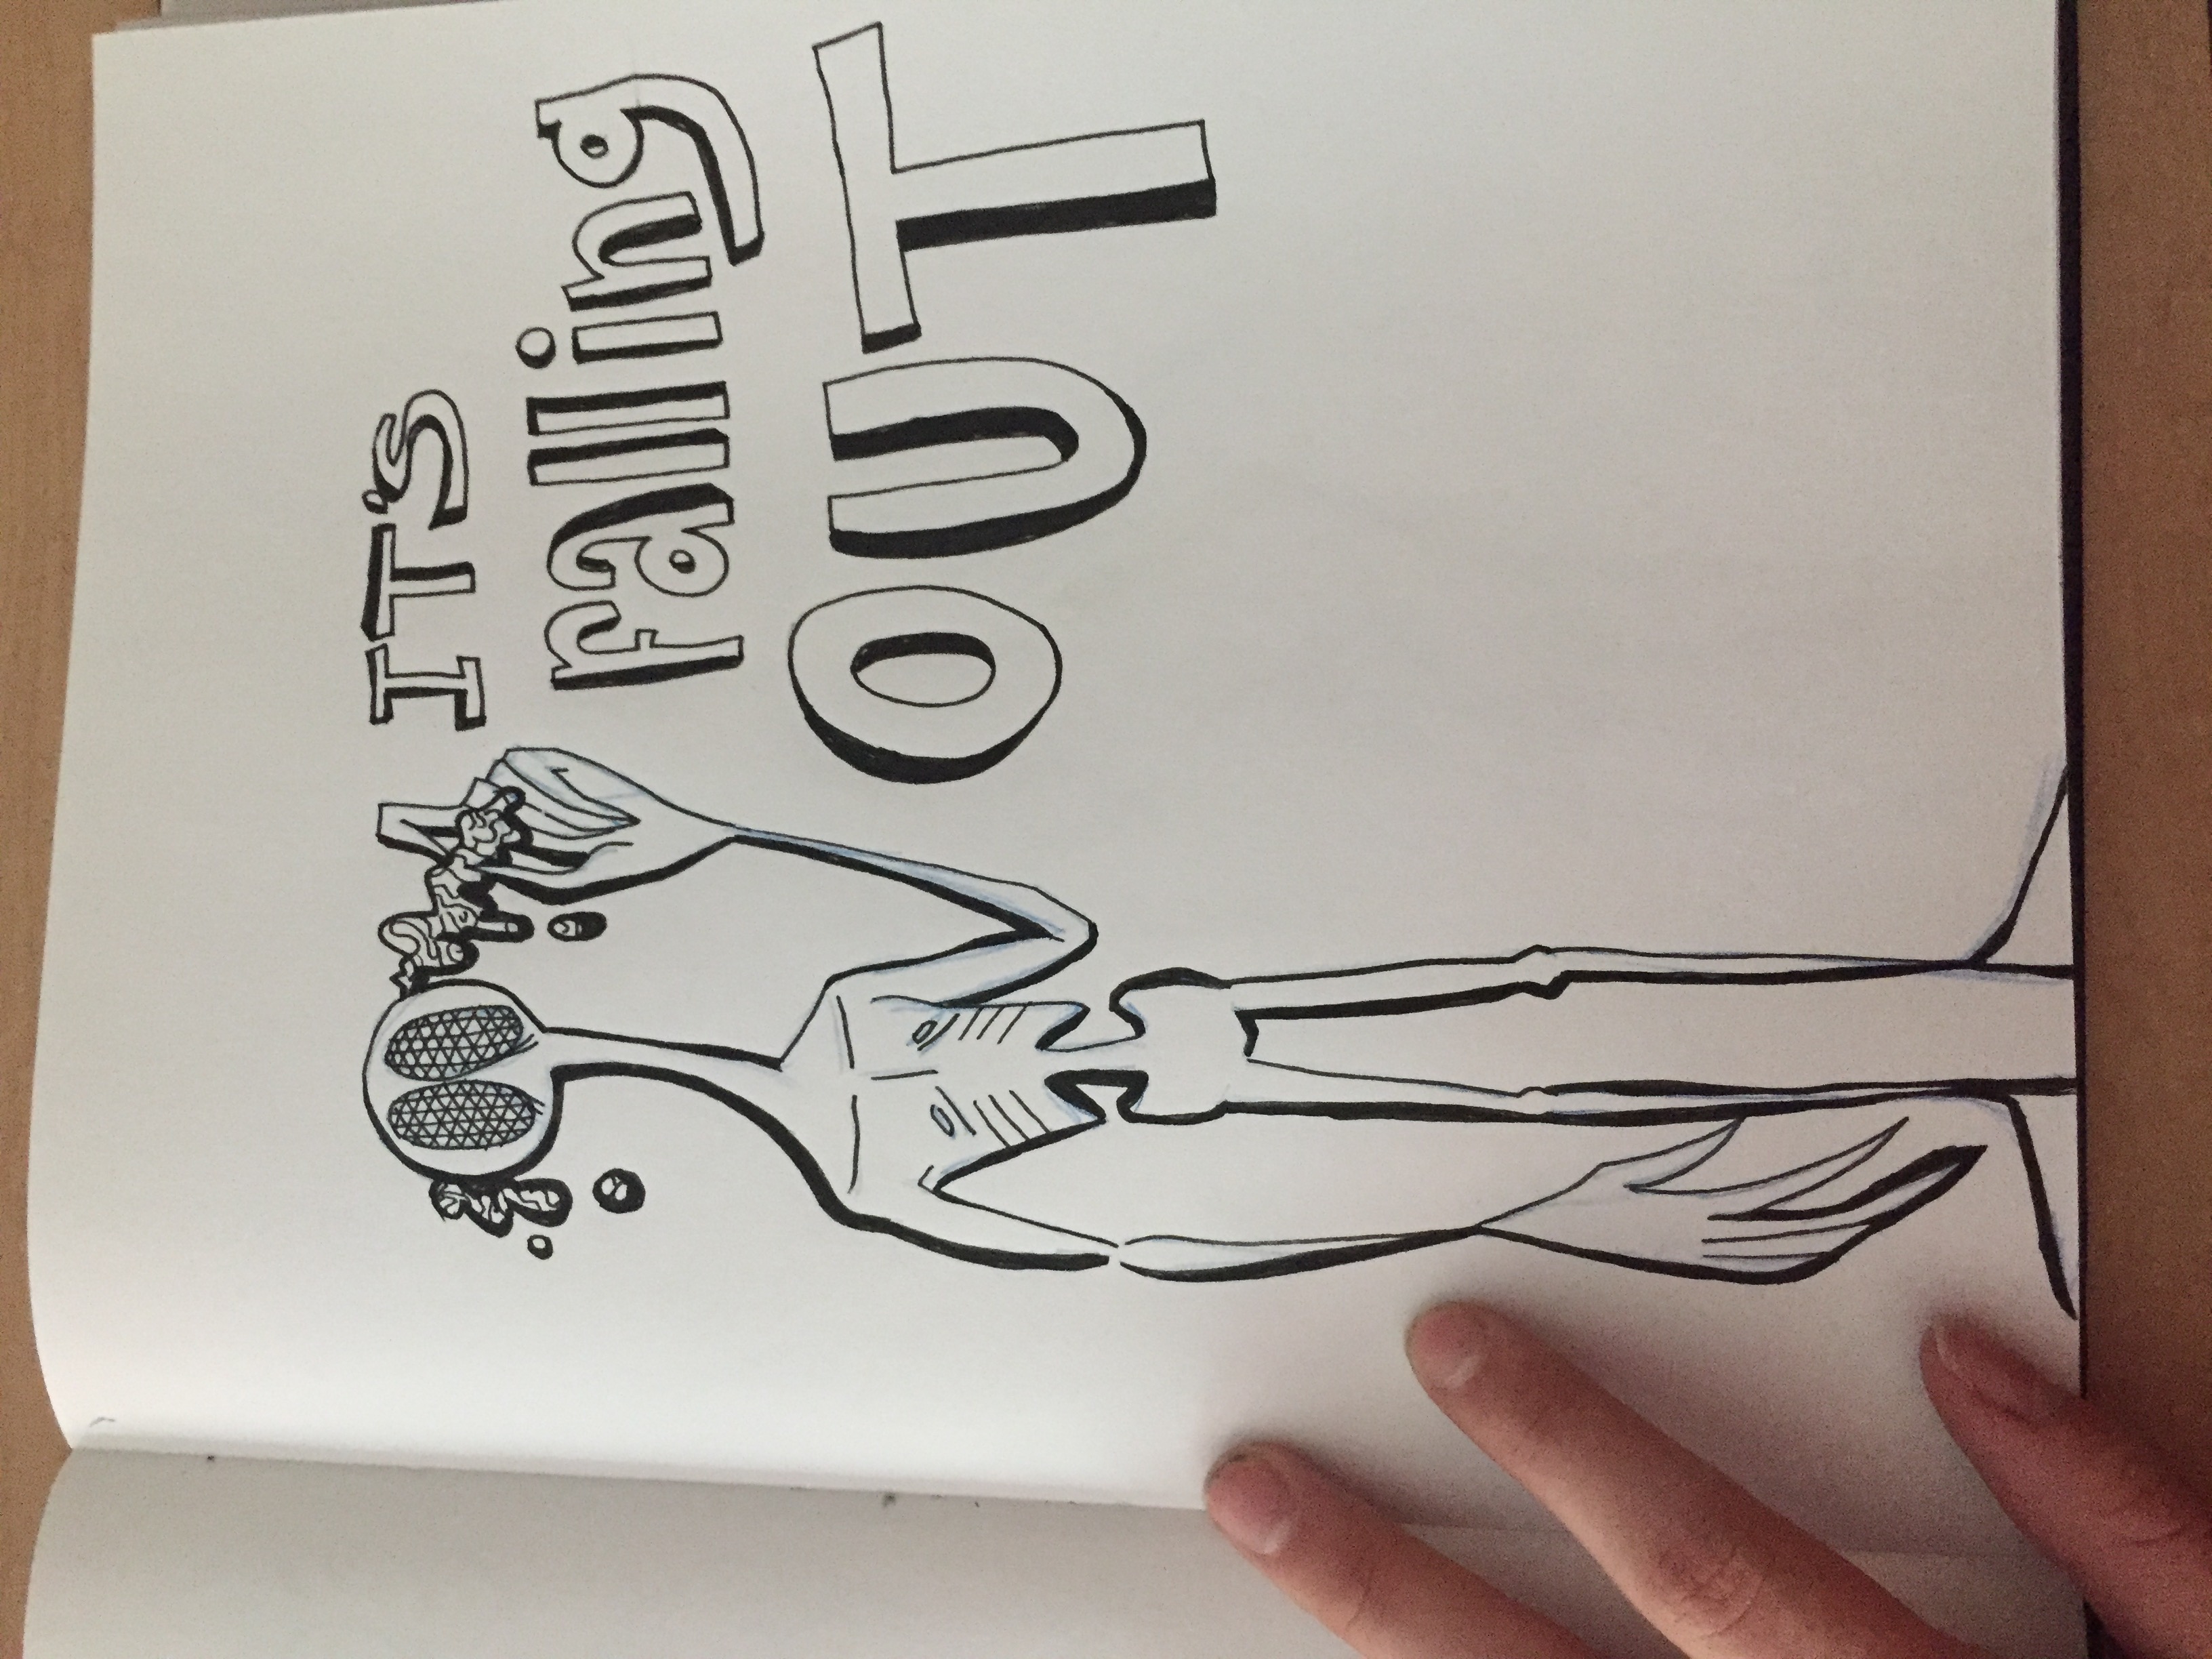 IT'S
falling
OUT